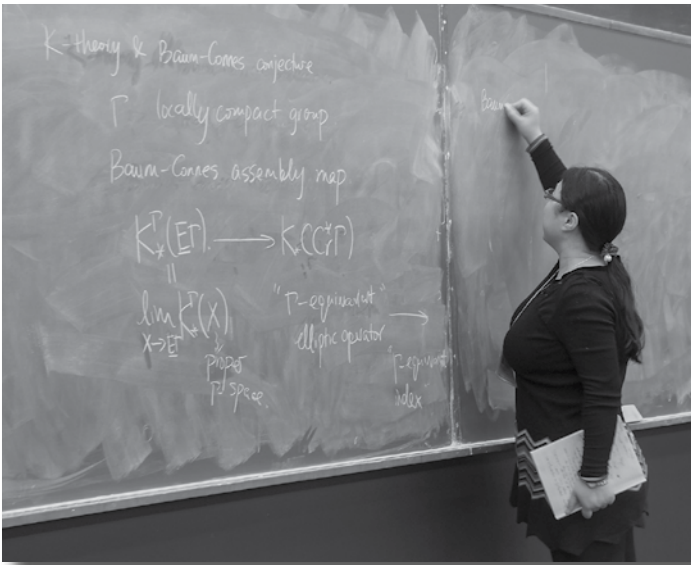 K-theory & Baum-Connes conjecture
Γ locally compact group
Baum-Connes assembly map
K_*^Γ(E̲Γ) ⟶ K_*(C_r^*Γ)
||
lim K_*^Γ(X)
X→E̲Γ
proper
Γ space.
"Γ-equivariant"
elliptic operator ⟶
"Γ-equivariant
index
Baum